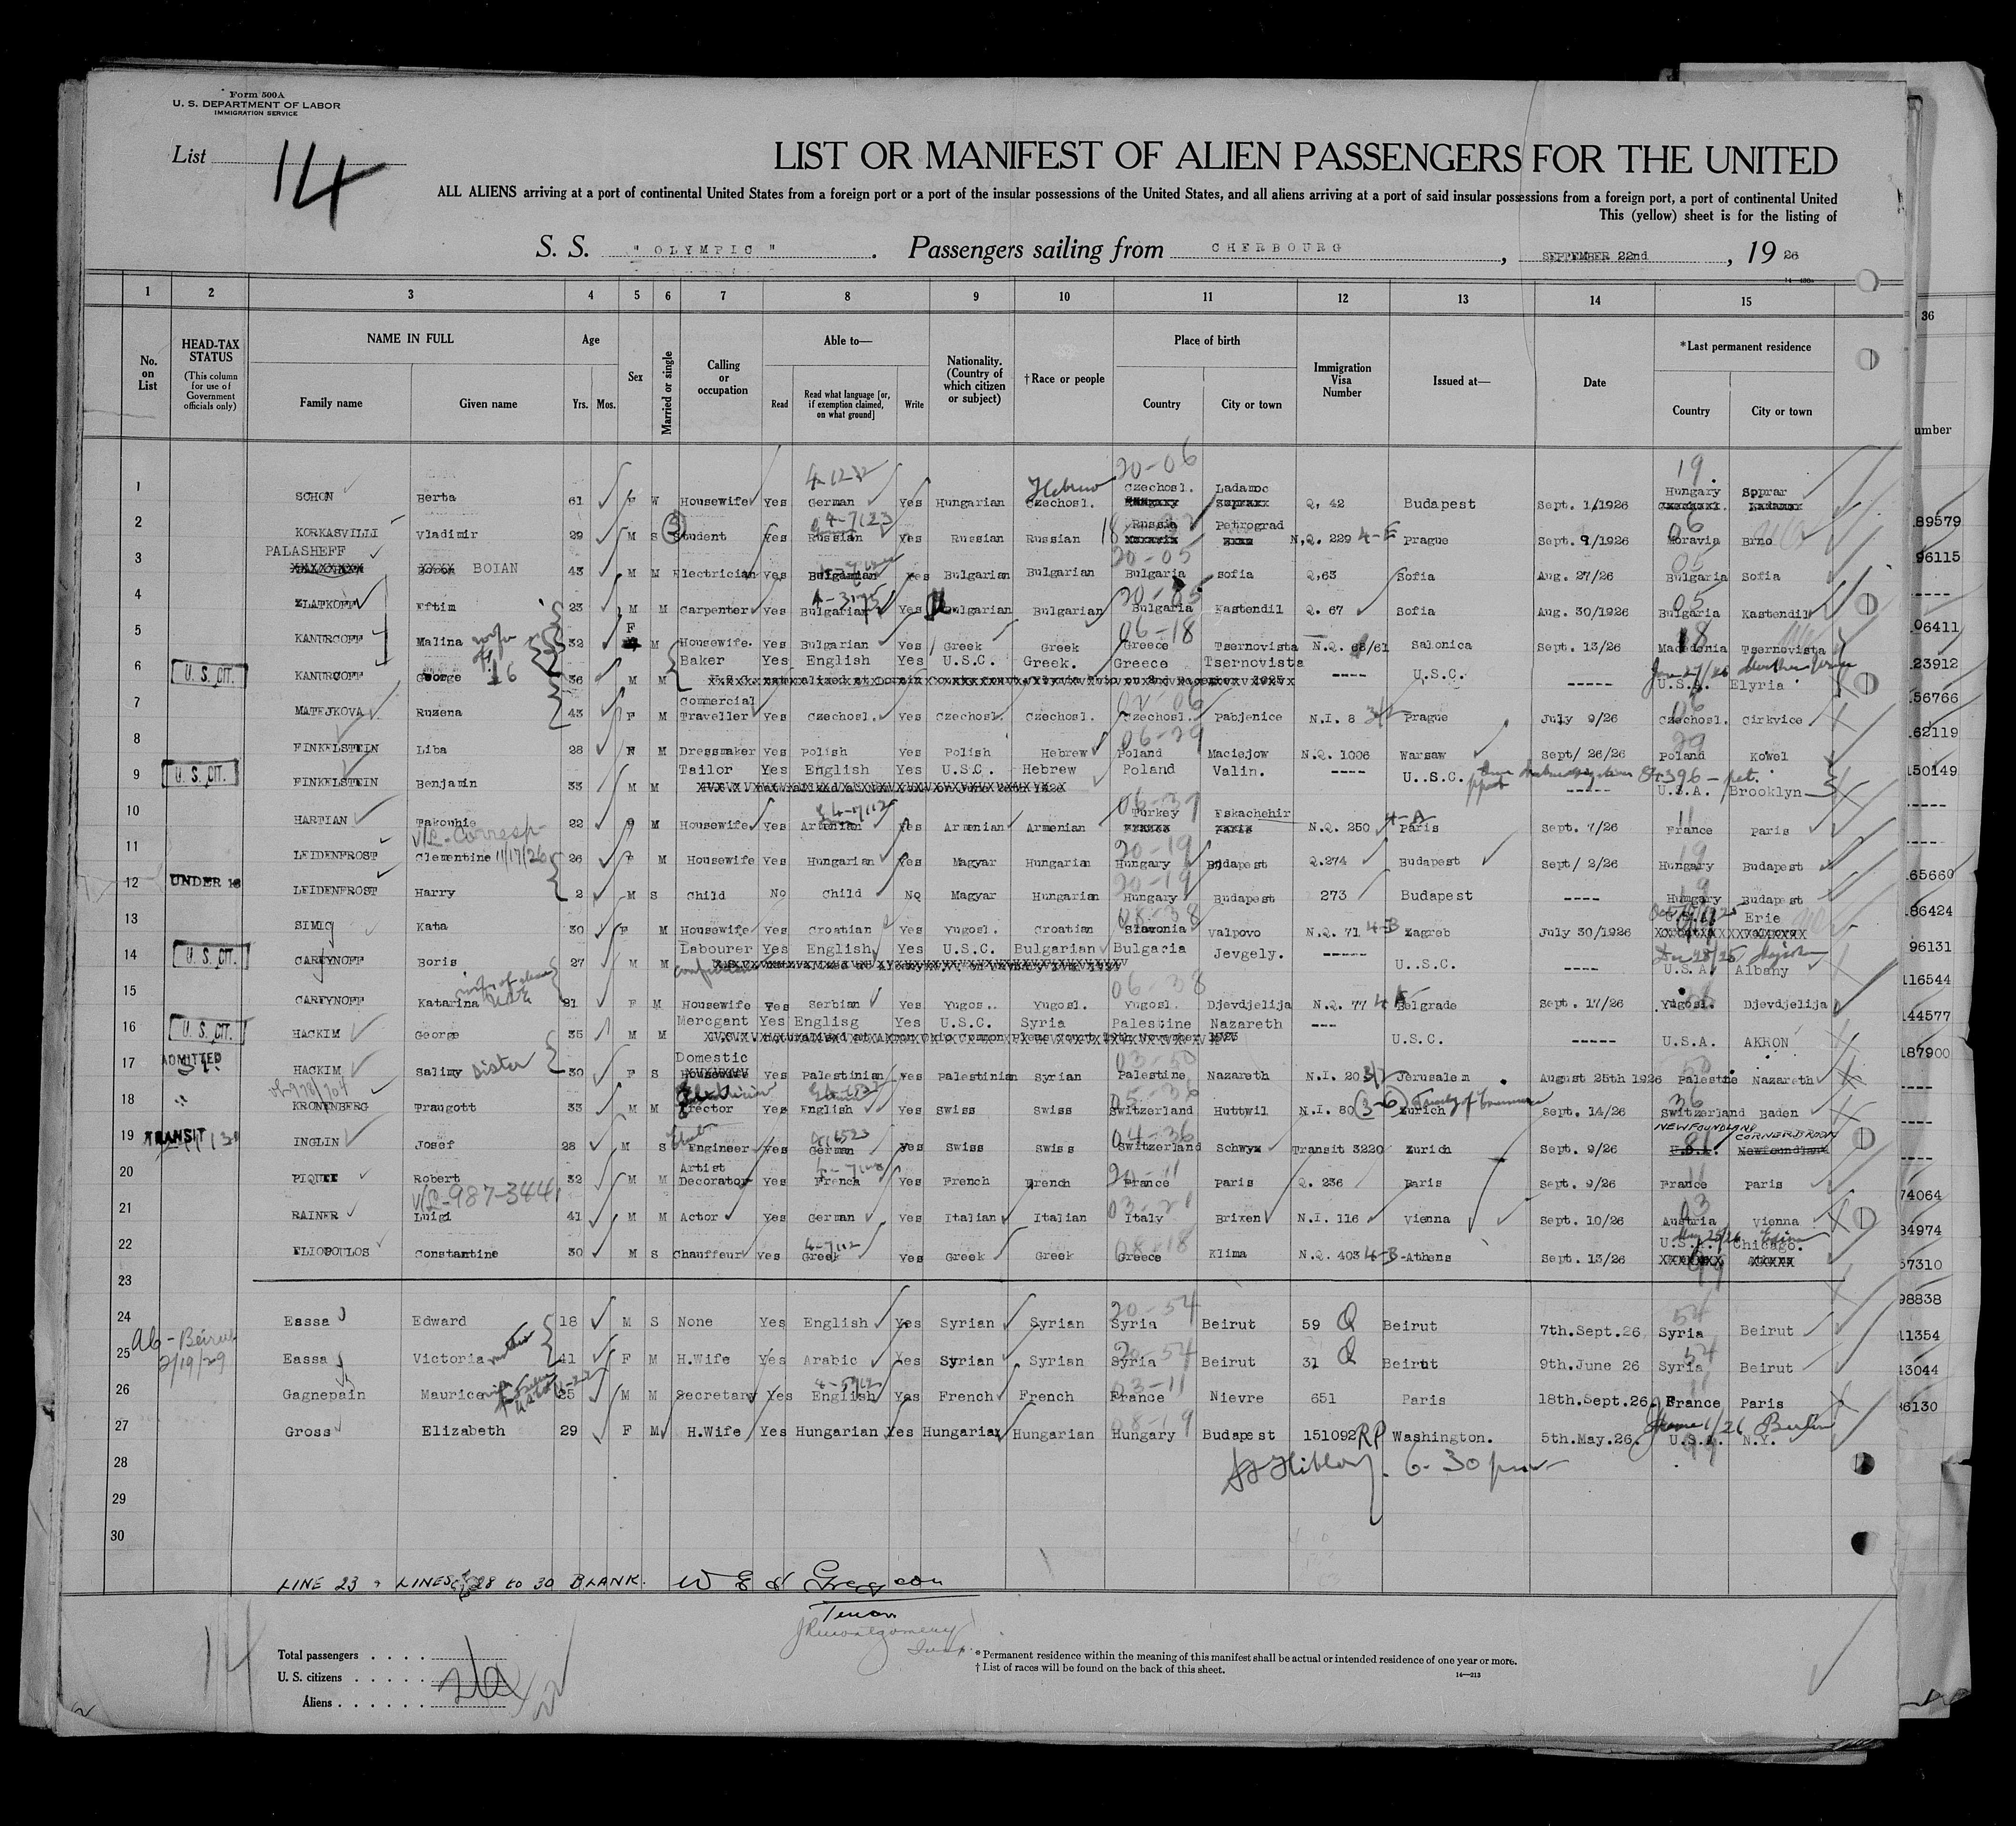 Form 500A
U. S. DEPARTMENT OF LABOR
IMMIGRATION SERVICE
List 14
LIST OR MANIFEST OF ALIEN PASSENGERS FOR THE UNITED
ALL ALIENS arriving at a port of continental United States from a foreign port or a port of the insular possessions of the United States, and all aliens arriving at a port of said insular possessions from a foreign port, a port of continental United
This (yellow) sheet is for the listing of
S. S. " OLYMPIC " . Passengers sailing from CHERBOURG , SEPTEMBER 22nd , 19 26
1 2 3 4 5 6 7 8 9 10 11 12 13 14 15 36
No. on List
HEAD-TAX STATUS (This column for use of Government officials only)
NAME IN FULL Family name Given name
Age Yrs. Mos.
Sex
Married or single
Calling or occupation
Able to— Read Read what language [or, if exemption claimed, on what ground] Write
Nationality. (Country of which citizen or subject)
†Race or people
Place of birth Country City or town
Immigration Visa Number
Issued at—
Date
*Last permanent residence Country City or town
umber
1 SCHON Berta 61 F W Housewife Yes German Yes Hungarian Hebrew Czechosl. 20-06 Czechosl. Ladamoc Q, 42 Budapest Sept. 1/1926 19 Hungary Soprar
2 KORKASVILLI Vladimir 29 M S Student Yes Russian Yes Russian Russian Russia Petrograd N,Q. 229 4-E Prague Sept. 9/1926 06 Moravia Brno
3 PALASHEFF BOIAN 43 M M Electrician Yes Bulgarian Yes Bulgarian Bulgarian 20-05 Bulgaria sofia Q,63 Sofia Aug. 27/26 05 Bulgaria Sofia
4 ZLATKOFF Eftim 23 M M Carpenter Yes Bulgarian Yes Bulgarian Bulgarian 20-05 Bulgaria Kastendil Q. 67 Sofia Aug. 30/1926 05 Bulgaria Kastendil
5 KANURCOFF Malina wife 32 F M Housewife. Yes Bulgarian Yes Greek Greek 06-18 Greece Tsernovista N.Q. 68/61 Salonica Sept. 13/26 18 Macedonia Tsernovista
6 U. S. CIT. KANURCOFF George 36 M M Baker Yes English Yes U.S.C. Greek. Greece Tsernovista ---- U.S.C. ----- U.S.A. Elyria
7 MATEJKOVA Ruzena 43 F M Commercial Traveller Yes Czechosl. Yes Czechosl. Czechosl. Czechosl. Pabjenice N.I. 8 Prague July 9/26 06 Czechosl. Cirkvice
8 FINKELSTEIN Liba 28 F M Dressmaker Yes Polish Yes Polish Hebrew 06-29 Poland Maciejow N.Q. 1006 Warsaw Sept/ 26/26 29 Poland Kowel
9 U. S. CIT. FINKELSTEIN Benjamin 33 M M Tailor Yes English Yes U.S.C. Hebrew Poland Valin. ---- U..S.C. ----- U.S.A. Brooklyn
10 HARTIAN Takouhie 22 M Housewife Yes Armenian Yes Armenian Armenian Turkey Eskachehir N.Q. 250 4-A Paris Sept. 7/26 11 France Paris
11 LEIDENFROST Clementine V/L-Corresp- 11/17/26 26 F M Housewife Yes Hungarian Yes Magyar Hungarian 20-19 Hungary Budapest Q.274 Budapest Sept/ 2/26 19 Hungary Budapest
12 UNDER 16 LEIDENFROST Harry 2 M S Child No Child No Magyar Hungarian 20-19 Hungary Budapest 273 Budapest Hungary Budapest
13 SIMIC Kata 30 F M Housewife Yes Croatian Yes Yugosl. Croatian 08-38 Slavonia Valpovo N.Q. 71 4-B Zagreb July 30/1926 U.S.A. Erie
14 U. S. CIT. CARTYNOFF Boris 27 M M Labourer Yes English Yes U.S.C. Bulgarian Bulgaria Jevgely. ----- U..S.C. ---- U.S.A. Albany
15 CARTYNOFF Katarina 21 F M Housewife Yes Serbian Yes Yugos.. Yugosl. 06-38 Yugosl. Djevdjelija N.Q. 77 Belgrade Sept. 17/26 Yugosl. Djevdjelija
16 U. S. CIT. HACKIM George 35 M M Mercgant Yes Englisg Yes U.S.C. Syria Palestine Nazareth --- U.S.C. ----- U.S.A. AKRON
17 ADMITTED HACKIM Salimy Sister 30 F S Domestic Yes Palestinian Yes Palestinian Syrian 03-50 Palestine Nazareth N.I. 20 Jerusalem August 25th 1926 50 Palestine Nazareth
18 KRONENBERG Traugott 33 M M Erector Yes English Yes Swiss Swiss 05-36 Switzerland Huttwil N.I. 80 (3-6) Zurich Sept. 14/26 36 Switzerland Baden
19 TRANSIT INGLIN Josef 28 M S Engineer Yes German Yes Swiss Swiss 04-36 Switzerland Schwyz Transit 3220 Zurich Sept. 9/26 NEWFOUNDLAND CORNERBROOK 81
20 PIQUEE Robert 32 M M Artist Decorator Yes French Yes French French 20-11 France Paris Q. 236 Paris Sept. 9/26 11 France Paris
21 RAINER V/L-987-3441 Luigi 41 M M Actor Yes German Yes Italian Italian 03-21 Italy Brixen N.I. 116 Vienna Sept. 10/26 03 Austria Vienna
22 ELIOPOULOS Constantine 30 M S Chauffeur Yes Greek Yes Greek Greek 08-18 Greece Klima N.Q. 403 4-B Athens Sept. 13/26 U.S.A. Chicago.
23
24 Eassa Edward 18 M S None Yes English Yes Syrian Syrian 20-54 Syria Beirut 59 Q Beirut 7th.Sept.26 54 Syria Beirut
25 Eassa Victoria mother 41 F M H.Wife Yes Arabic Yes Syrian Syrian 20-54 Syria Beirut 31 Q Beirut 9th.June 26 54 Syria Beirut
26 Gagnepain Maurice 35 M M Secretary Yes English Yes French French 03-11 France Nievre 651 Paris 18th.Sept.26 11 France Paris
27 Gross Elizabeth 29 F M H.Wife Yes Hungarian Yes Hungarian Hungarian 08-19 Hungary Budapest 151092 RP Washington. 5th.May.26. U.S.A. N.Y.
28 6-30 pm
29
30
LINE 23 & LINES 28 to 30 BLANK.
14
Total passengers . . . .
U. S. citizens . . . . .
Aliens . . . . . .
*Permanent residence within the meaning of this manifest shall be actual or intended residence of one year or more.
† List of races will be found on the back of this sheet.
14—213
89579
96115
----
06411
23912
56766
62119
150149
-----
----
65660
86424
96131
116544
144577
187900
----
----
----
74064
84974
57310
98838
11354
43044
86130